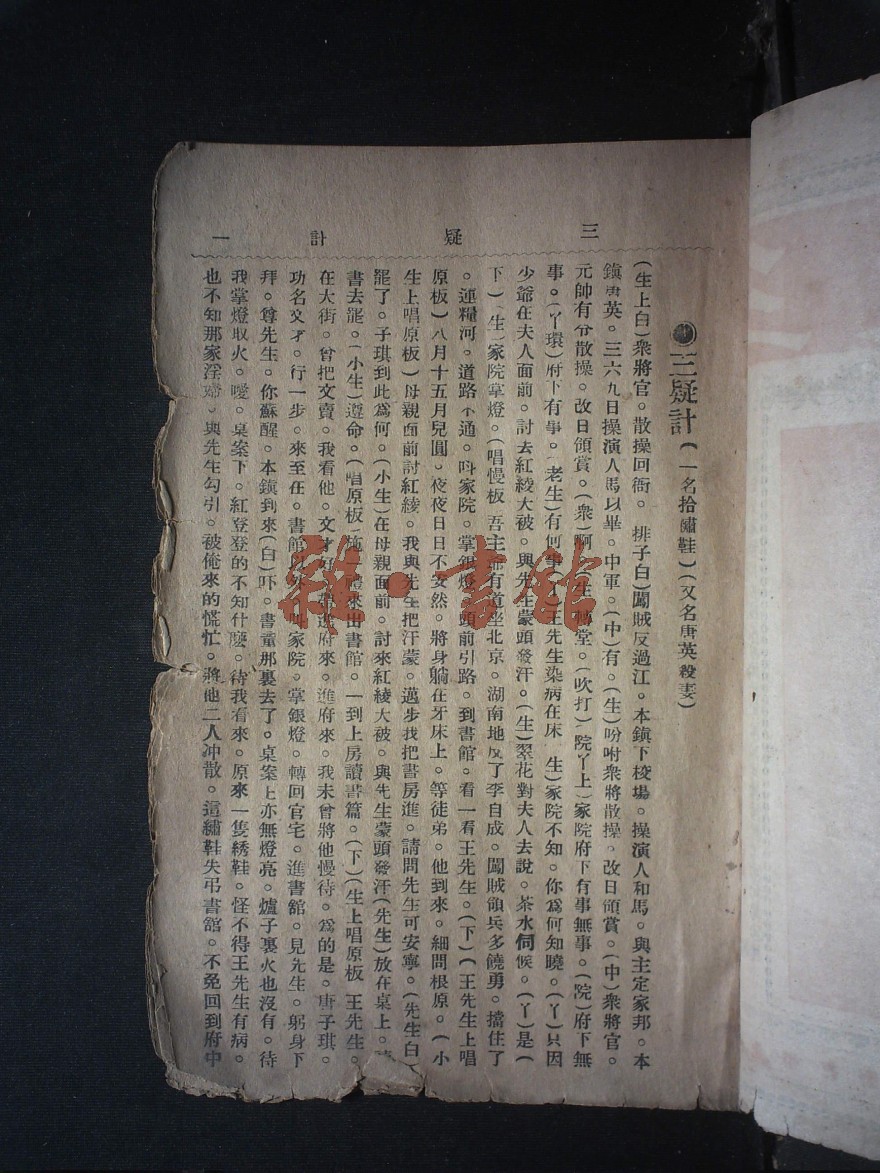 三疑計　一
三疑計(一名拾繡鞋)(又名唐英殺妻)
(生上白)衆將官。散操回衙。 排子白)闖賊反過江。本鎮下校場。操演人和馬。與主定家邦。本
鎮唐英。三六九日操演人馬以畢。中軍。(中)有。(生)吩咐衆將散操。改日領賞。(中)衆將官。
元帥有令散操。改日領賞。(衆)啊(生)轉堂。(吹打)院丫上)家院府下有事無事。(院)府下無
事。(丫環)府下有事。 老生)有何事(丫)王先生染病在床 生)家院不知。你爲何知曉。(丫)只因
少爺在夫人面前。討去紅綾大被。與先生蒙頭發汗。(生)翠花對夫人去說。茶水伺候。(丫)是(
下)(生)家院掌燈。(唱慢板 吾主爺有道坐北京。湖南地反了李自成。闖賊領兵多饒勇。擋住了
。運糧河。道路不通。叫家院。掌銀燈。頭前引路。到書館。看一看王先生。(下)(王先生上唱
原板)八月十五月兒圓。夜夜日日不安然。將身躺在牙床上。等徒弟。他到來。細問根原。(小
生上唱原板)母親面前討紅綾。我與先生把汗蒙。邁步我把書房進。請問先生可安寧。(先生白)
罷了。子琪到此爲何。(小生)在母親面前。討來紅綾大被。與先生蒙頭發汗(先生)放在桌上。
書去罷。(小生)遵命。(唱原板 施 禮來出書館。一到上房讀書篇。(下)(生上唱原板 王先生。
在大街。曾把文賣。我看他。文才好 帶進府來。進府來。我未曾將他慢待。爲的是。唐子琪。
功名文才。行一步。來至在。書館以外 叫家院。掌銀燈。轉回官宅。進書舘。見先生。躬身下
拜。尊先生。你蘇醒。本鎮到來(白)吓。書童那裏去了。桌案上亦無燈亮。爐子裏火也沒有。待
我掌燈取火。噯。桌案下。紅登登的不知什麼。待我看來。原來一隻綉鞋。怪不得王先生有病。
也不知那家淫婦。與先生勾引。被俺來的慌忙。將他二人冲散。這繡鞋失弔書舘。不免回到府中
雜·書館